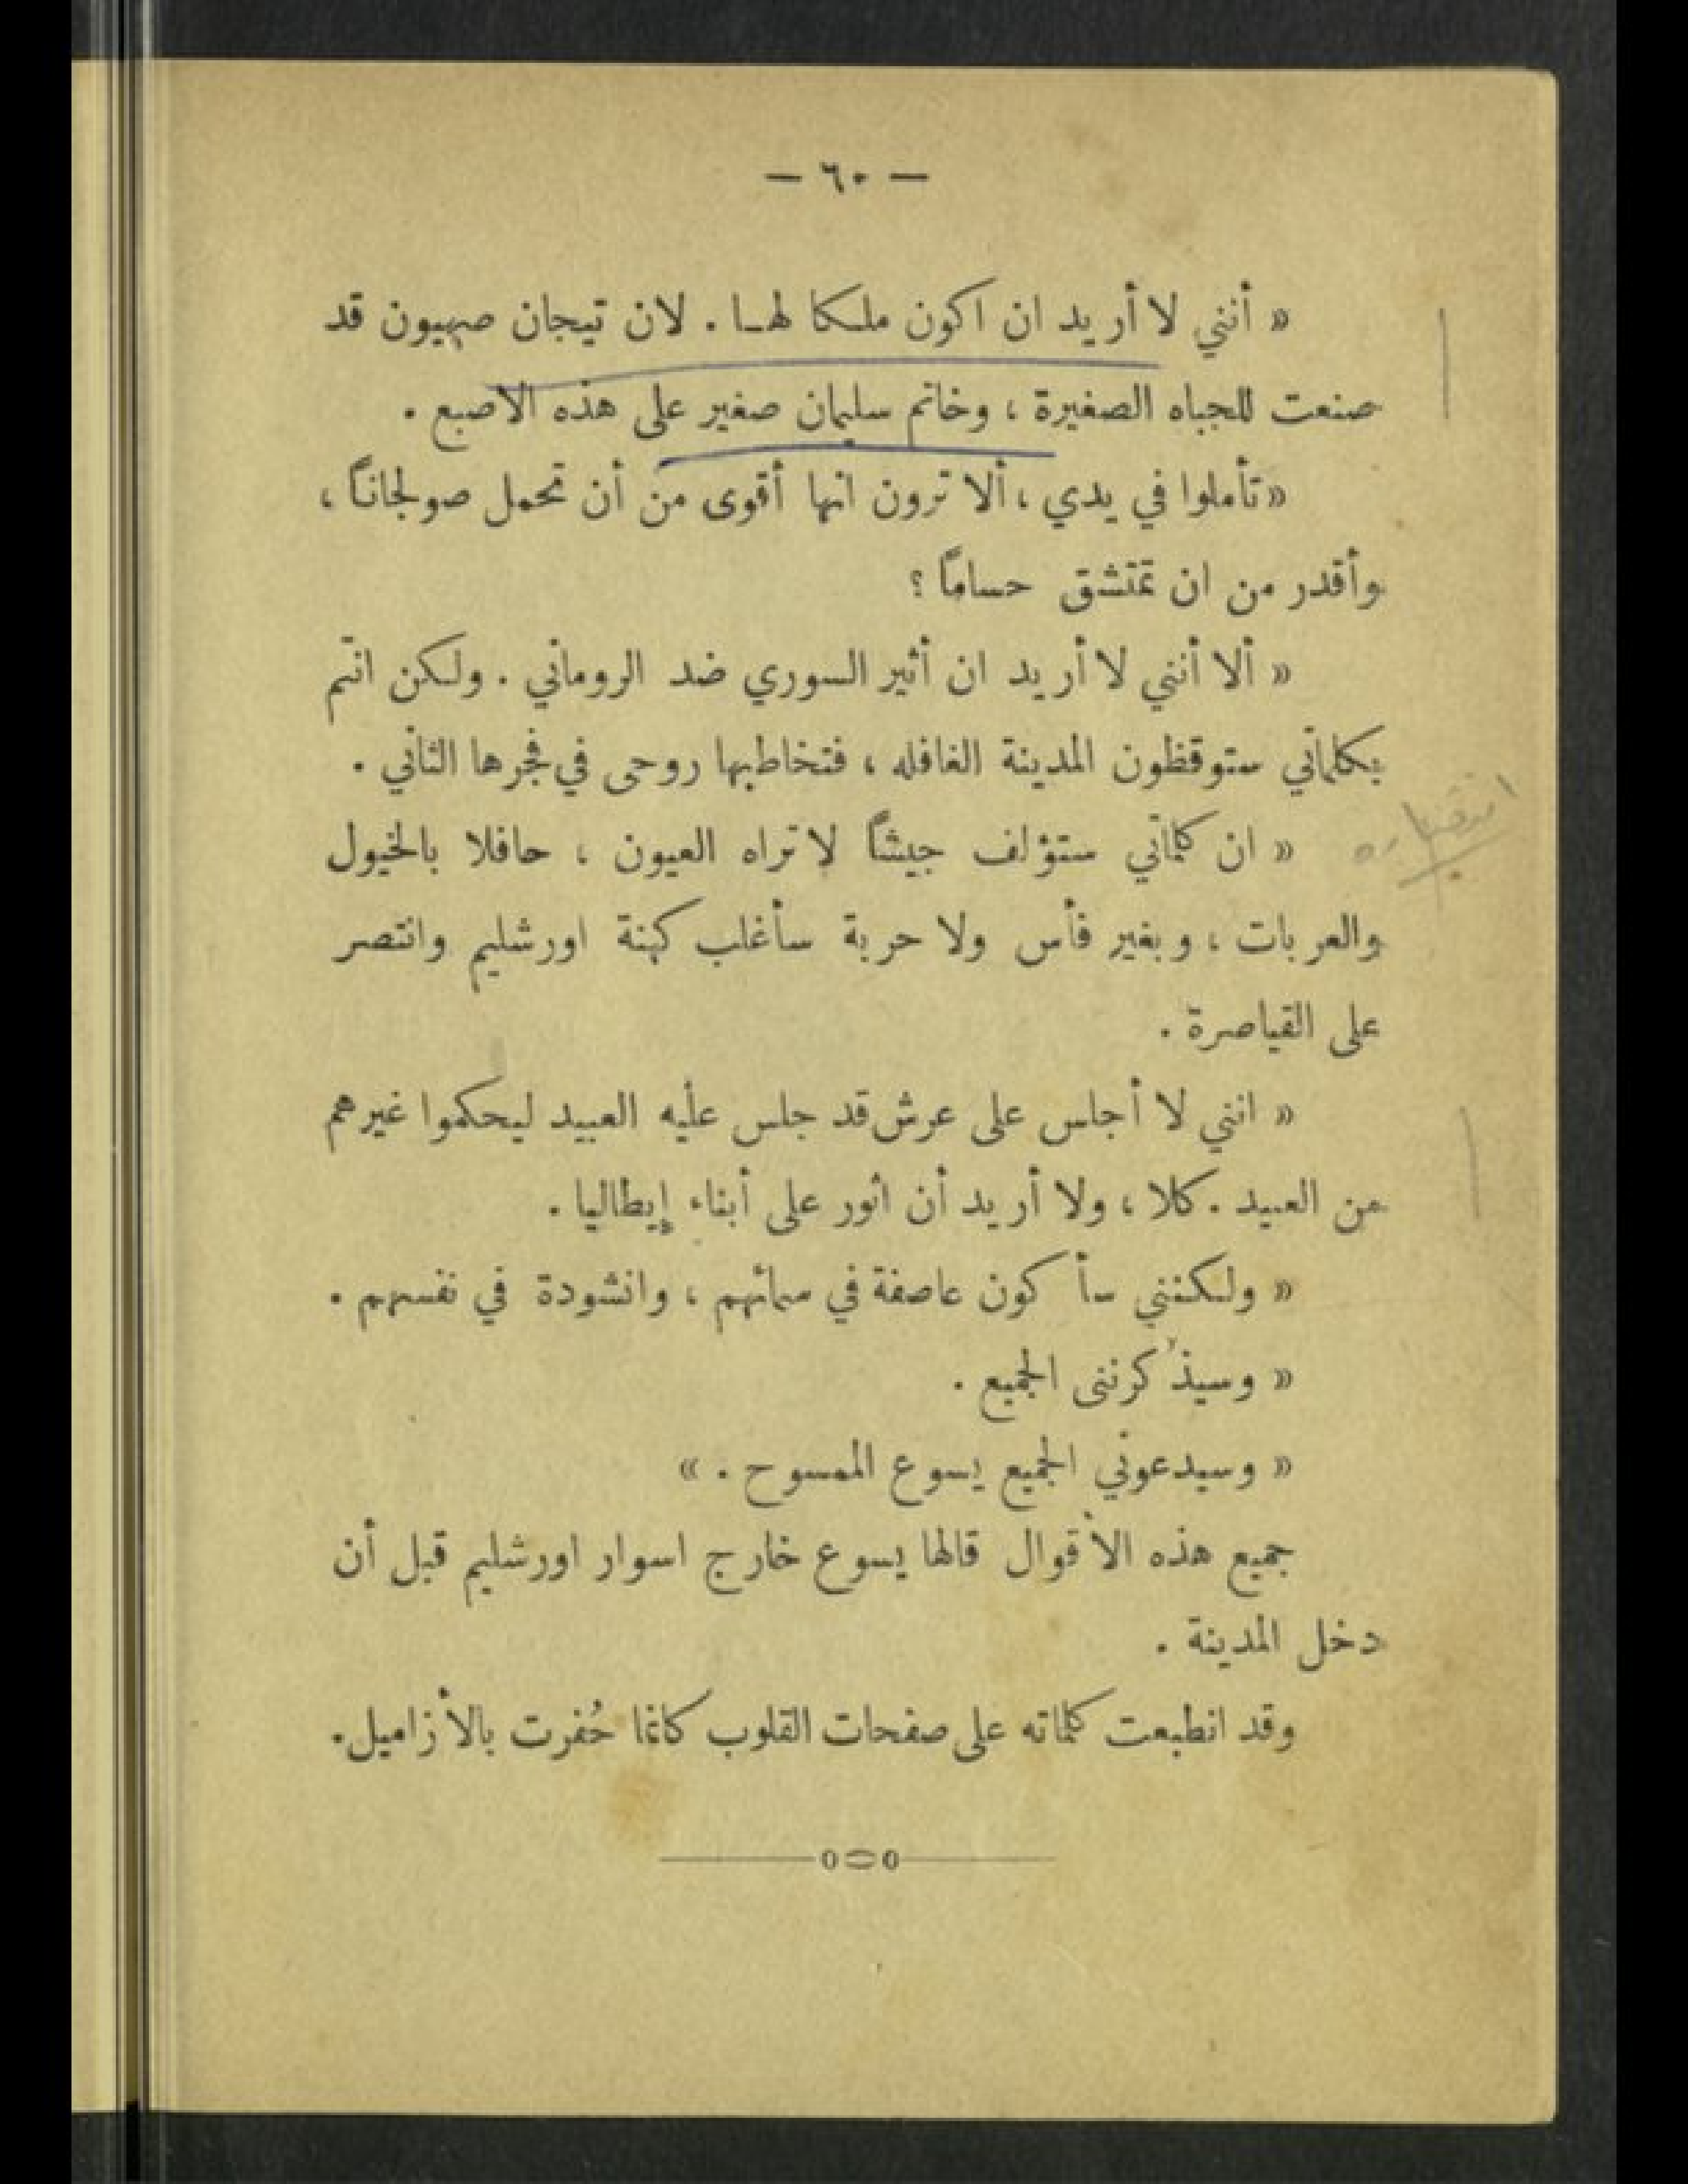 — ٦٠ —
« أنني لا أريد ان اكون ملكا لهـا . لان تيجان صهيون قد
صنعت للجباه الصغيرة ، وخاتم سليمان صغير على هذه الاصبع .
« تأملوا في يدي ، ألا ترون انها أقوى من أن تحمل صولجاناً ،
وأقدر من ان تمتشق حساماً ؟
« ألا أنني لا أريد ان أثير السوري ضد الروماني . ولكن انتم
بكلماتي ستوقظون المدينة الغافله ، فتخاطبها روحى في فجرها الثاني .
« ان كلماتي ستؤلف جيشاً لا تراه العيون ، حافلا بالخيول
والعربات ، وبغير فأس ولا حربة سأغلب كهنة اورشليم وانتصر
على القياصرة .
« انني لا أجلس على عرش قد جلس عليه العبيد ليحكموا غيرهم
من العبيد . كلا ، ولا أريد أن اثور على أبناء إيطاليا .
« ولكنني سأكون عاصفة في سمائهم ، وانشودة في نفسهم .
« وسيذكرننى الجميع .
« وسيدعوني الجميع يسوع الممسوح . »
جميع هذه الأقوال قالها يسوع خارج اسوار اورشليم قبل أن
دخل المدينة .
وقد انطبعت كلماته على صفحات القلوب كانما حُفرت بالأزاميل .